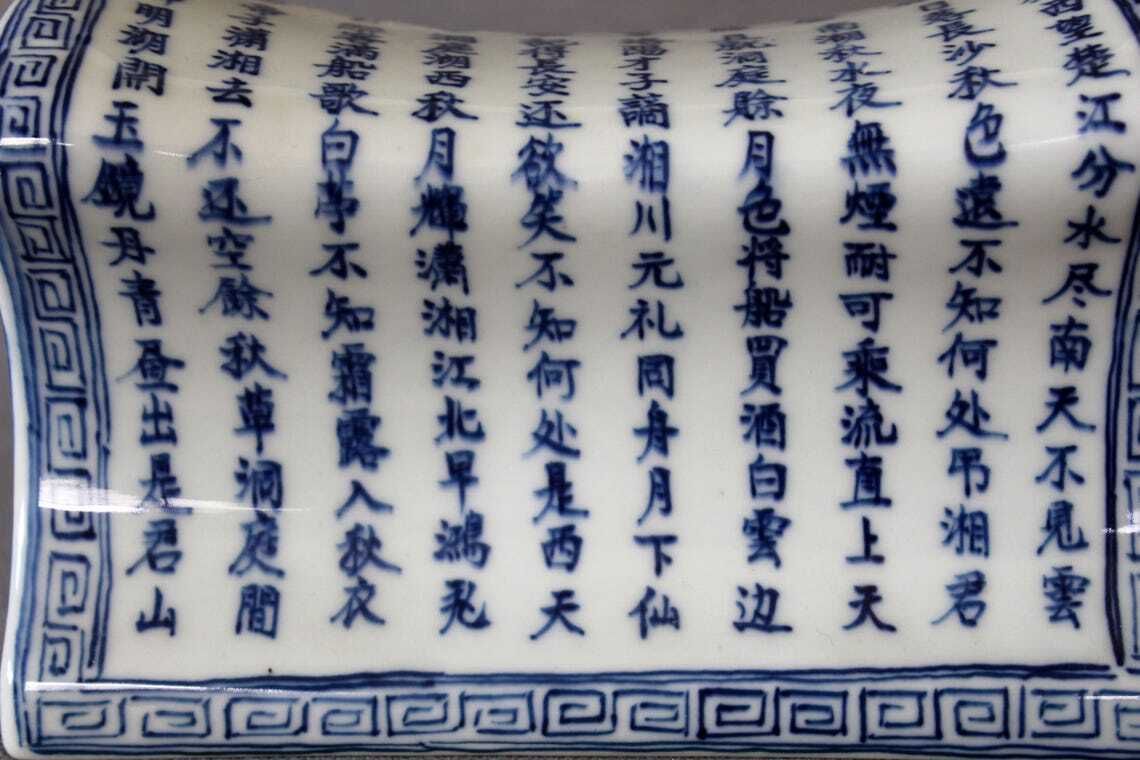 西望楚江分水尽南天不見雲
落長沙秋色遠不知何处吊湘君
湖秋水夜無煙耐可乘流直上天
就洞庭賒月色将船買酒白雲边
陽才子謫湘川元礼同舟月下仙
得長安还欲笑不知何处是西天
庭湖西秋月輝瀟湘江北早鴻飛
滿船歌白苧不知霜露入秋衣
子瀟湘去不还空餘秋草洞庭間
明湖開玉鏡丹青昼出是君山